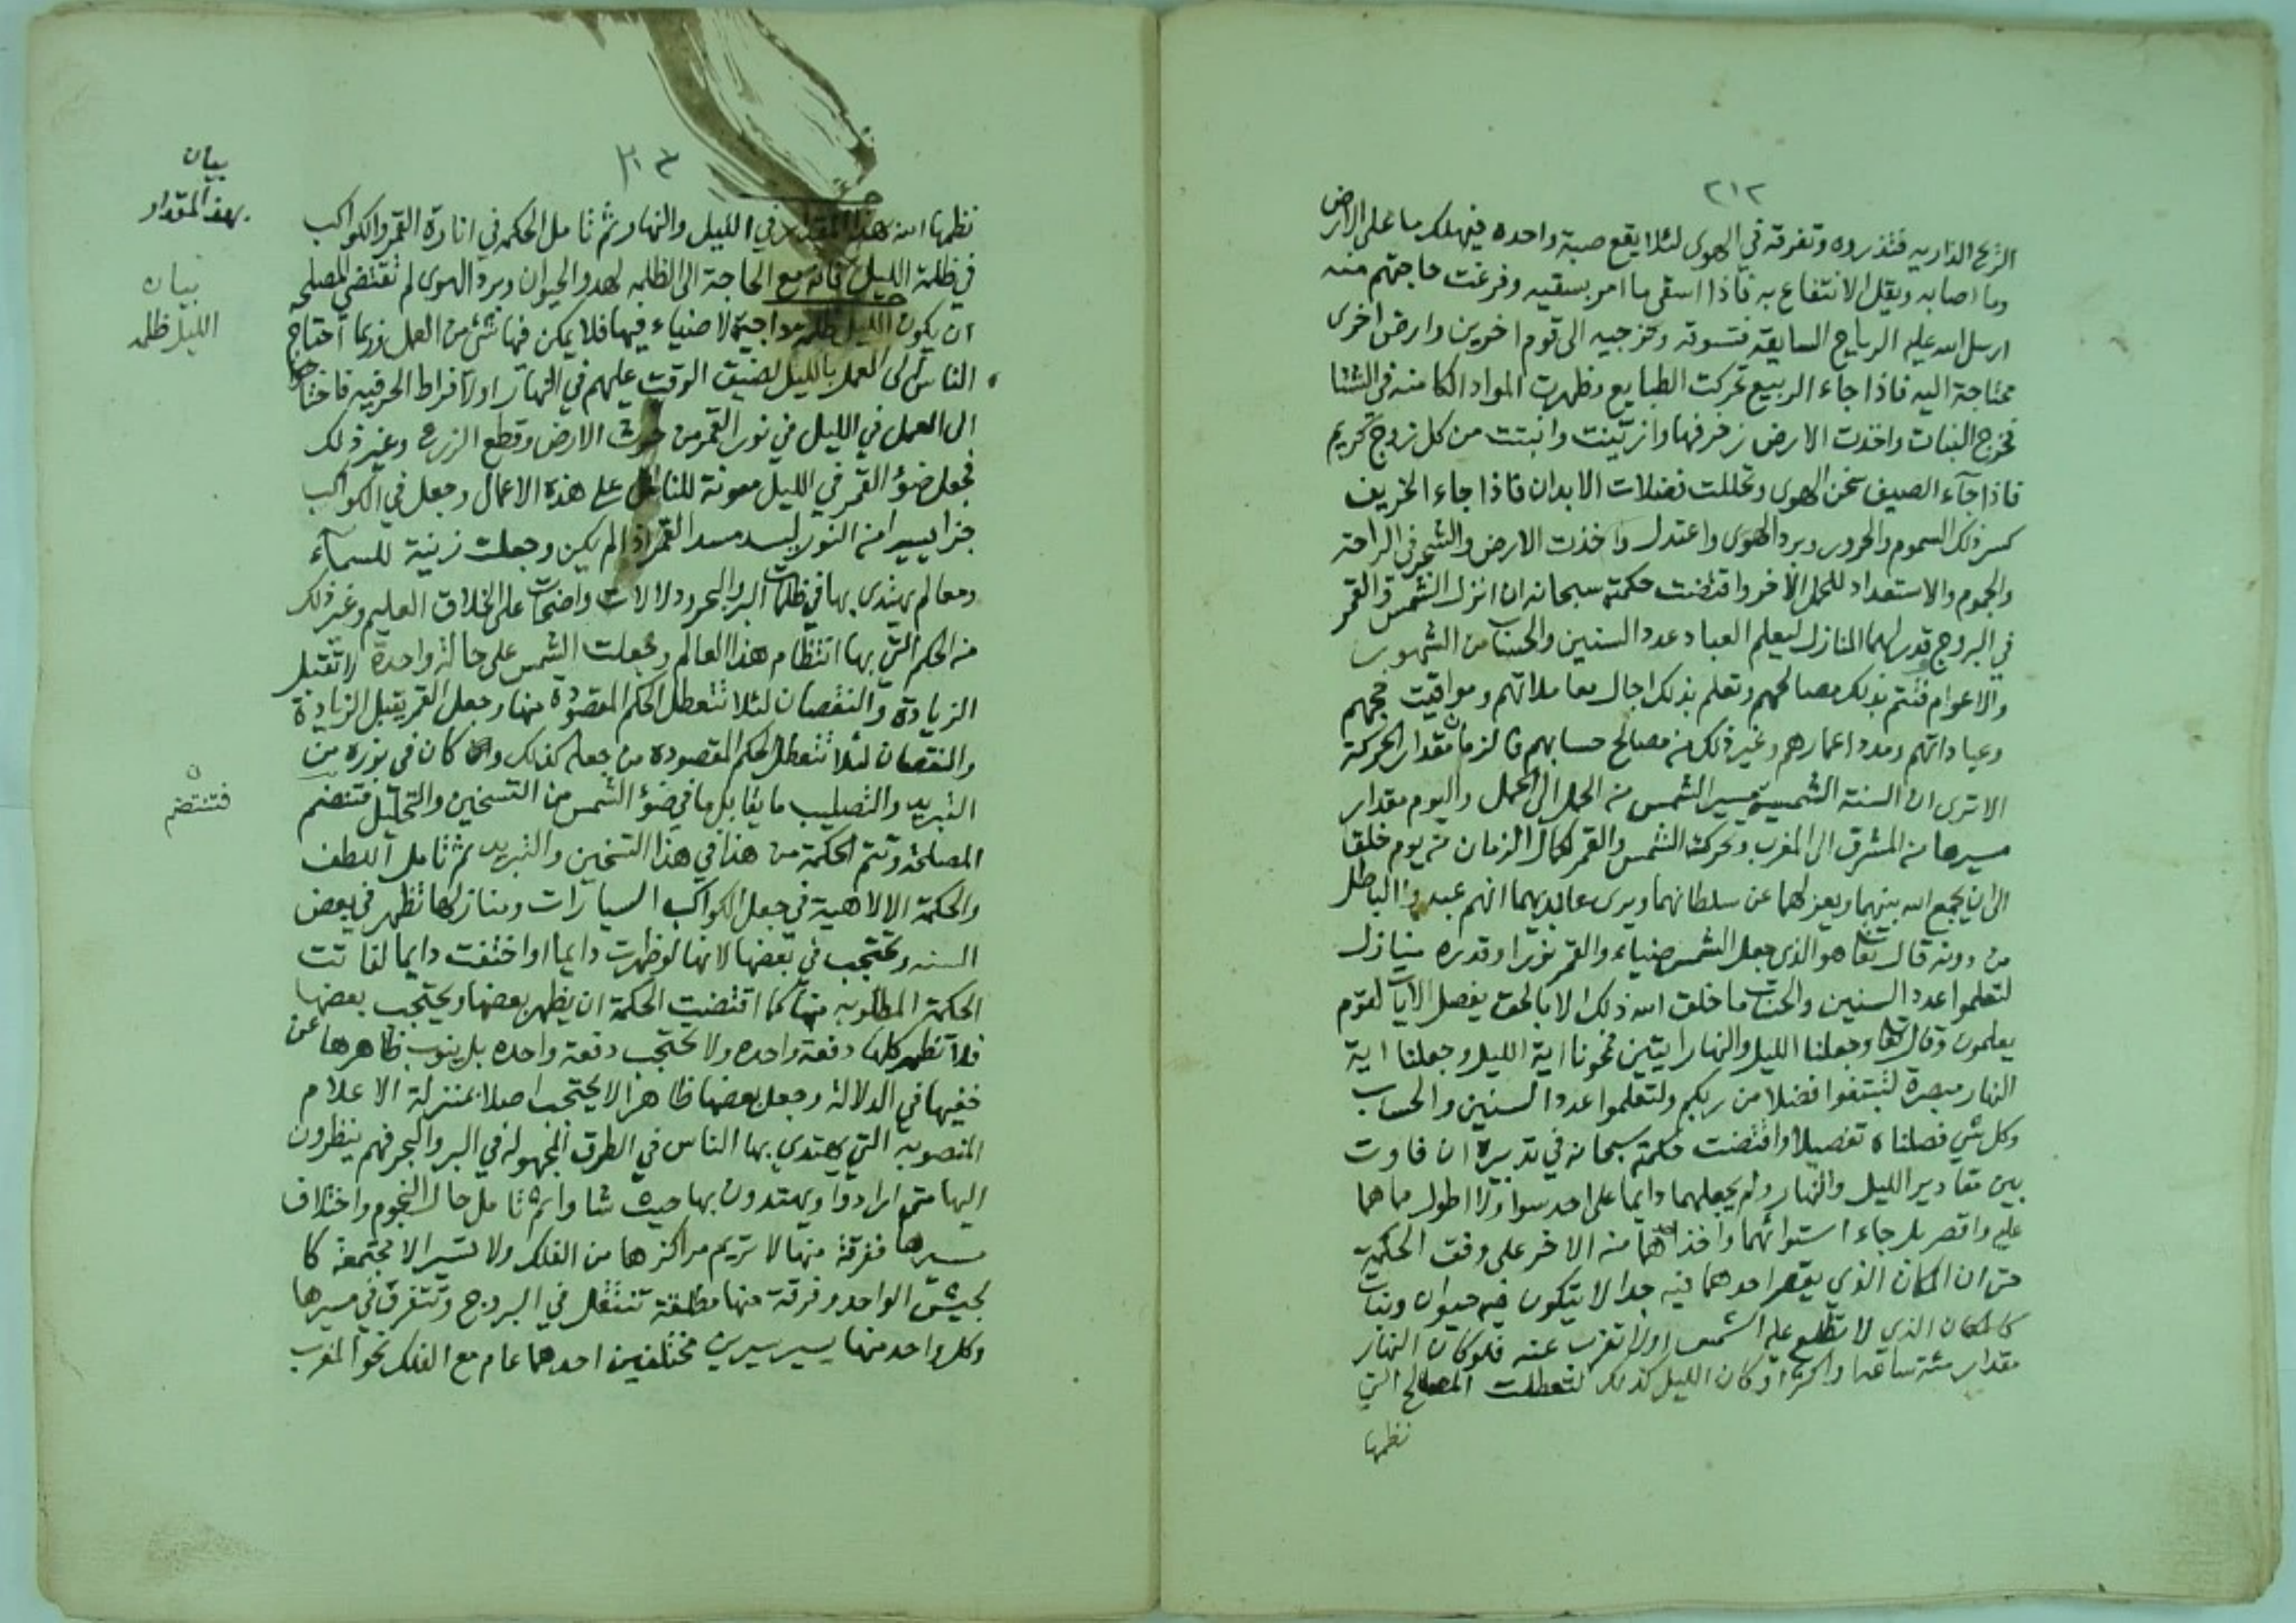 ٢١٢
الريح الذاريه فتذروه وتفرقه في الهوى لئلا يقع صبة واحده فيهلك ما على الارض
وما اصابه ويقل الانتفاع به فاذا اسقى ما امر بسقيه وفرغت حاجتهم منه
ارسل الله عليه الرياح السايقة فتسوقه وتزجيه الى قوم اخرين وارض اخرى
محتاجة اليه فاذا جاء الربيع تحركت الطبايع وظهرت المواد الكامنه في الشتا
فخرج النبات واخذت الارض زخرفها وازينت وانبتت من كل زوج كريم
فاذا جآء الصيف سخن الهوى وتحللت فضلات الابدان فاذا جاء الخريف
كسر ذلك السموم والحرور وبرد الهوى واعتدل واخذت الارض والشجر في الراحة
والجموم والاستعداد للحمل الآخر واقتضت حكمته سبحانه ان انزل الشمس والقمر
في البروج وقدر لهما المنازل ليعلم العباد عدد السنين والحساب من الشهور
والاعوام فتتم بذلك مصالحهم وتعلم بذلك اجال معاملاتهم ومواقيت حجهم
وعباداتهم ومدد اعمارهم وغير ذلك من مصالح حسابهم فالزمان مقدار الحركة
الا ترى ان السنة الشمسية مسير الشمس من الحمل الى الحمل واليوم مقدار
مسيرها من المشرق الى المغرب وبحركة الشمس والقمر كمال الزمان من يوم خلقا
الى ان يجمع الله بينهما ويعزلهما عن سلطانهما ويرى عابديهما انهم عبدوا الباطل
من دونه قال تعا هو الذي جعل الشمس ضياء والقمر نورا وقدره منازل
لتعلموا عدد السنين والحساب ما خلق الله ذلك الا بالحق يفصل الآيات لقوم
يعلمون وقال تعا وجعلنا الليل والنهار ايتين فمحونا اية الليل وجعلنا اية
النهار مبصرة لتبتغوا فضلا من ربكم ولتعلموا عدد السنين والحساب
وكل شي فصلناه تفصيلا واقتضت حكمته سبحانه في تدبيره ان فاوت
بين مقادير الليل والنهار ولم يجعلهما دايما على احد سوا ولا اطول مما هما
عليه واقصر بل جاء استوائهما واخذ احدهما من الاخر على وفق الحكمة
حتى ان المكان الذي يقصر احدهما فيه جدا لا يتكون فيه حيوان ونبات
كالمكان الذي لا تطلع عليه الشمس اولا تغرب عنه فلو كان النهار
مقدار مئة ساعه او اكثر او كان الليل كذلك لتعطلت المصالح التي
نظمها
٢١٣
نظمها الله هذا المقدار في الليل والنهار ثم تامل الحكمه في انارة القمر والكواكب
في ظلمة الليل فانه مع الحاجة الى الظلمه لهدو الحيوان وبرد الهوى لم تقتض المصلحه
ان يكون الليل ظلمة داجية لا ضياء فيها فلا يمكن فيها شئ من العمل وربما احتاج
الناس الى العمل بالليل لضيق الوقت عليهم في النهار او لافراط الحر فيه فاحتاجوا
الى العمل في الليل في نور القمر من حرث الارض وقطع الزرع وغير ذلك
فجعل ضؤ القمر في الليل معونة للناس على هذه الاعمال وجعل في الكواكب
جزا يسيرا من النور ليسد مسد القمر اذا لم يكن وجعلت زينة للسمآء
ومعالم يهتدى بها في ظلمات البر والبحر ودلالات واضحات على الخلاق العليم وغير ذلك
من الحكم التي بها انتظام هذا العالم وجعلت الشمس على حالة واحدة لا تقبل
الزيادة والنقصان لئلا تتعطل الحكم المقصوده منها وجعل القمر يقبل الزيادة
والنقصان لئلا تتعطل الحكم المقصوده من جعله كذلك وان كان في نوره من
التبريد والتصليب ما يقابل ما في ضؤ الشمس من التسخين والتحليل فتنضم
المصلحة وتتم الحكمة من هذا في هذا التسخين والتبريد ثم تامل اللطف
والحكمة الالاهية في جعل الكواكب السيارات ومنازلها تظهر في بعض
السنه وتحتجب في بعضها لانها لو ظهرت دايما او اختفت دايما لفاتت
الحكمة المطلوبه منها كما اقتضت الحكمة ان يظهر بعضها ويحتجب بعضها
فلا تظهر كلها دفعة واحده ولا تحتجب دفعة واحده بل ينوب ظاهرها عن
خفيها في الدلالة وجعل بعضها ظاهرا لا يحتجب اصلا بمنزلة الاعلام
المنصوبه التي يهتدي بها الناس في الطرق المجهولة في البر والبحر فهم ينظرون
اليها متى ارادوا ويهتدون بها حيث شاوا ثم تامل حال النجوم واختلاف
مسيرها ففرقة منها لا تريم مراكزها من الفلك ولا تسير الا مجتمعة كا
لجيش الواحد وفرقة منها مطلقة تنتقل في البروج وتتفرق في مسيرها
وكل واحد منها يسير سيرين مختلفين احدهما عام مع الفلك نحو المغرب
بيان
بهذا المقدار
بيان
الليل ظلمه
ن
فتنتضم